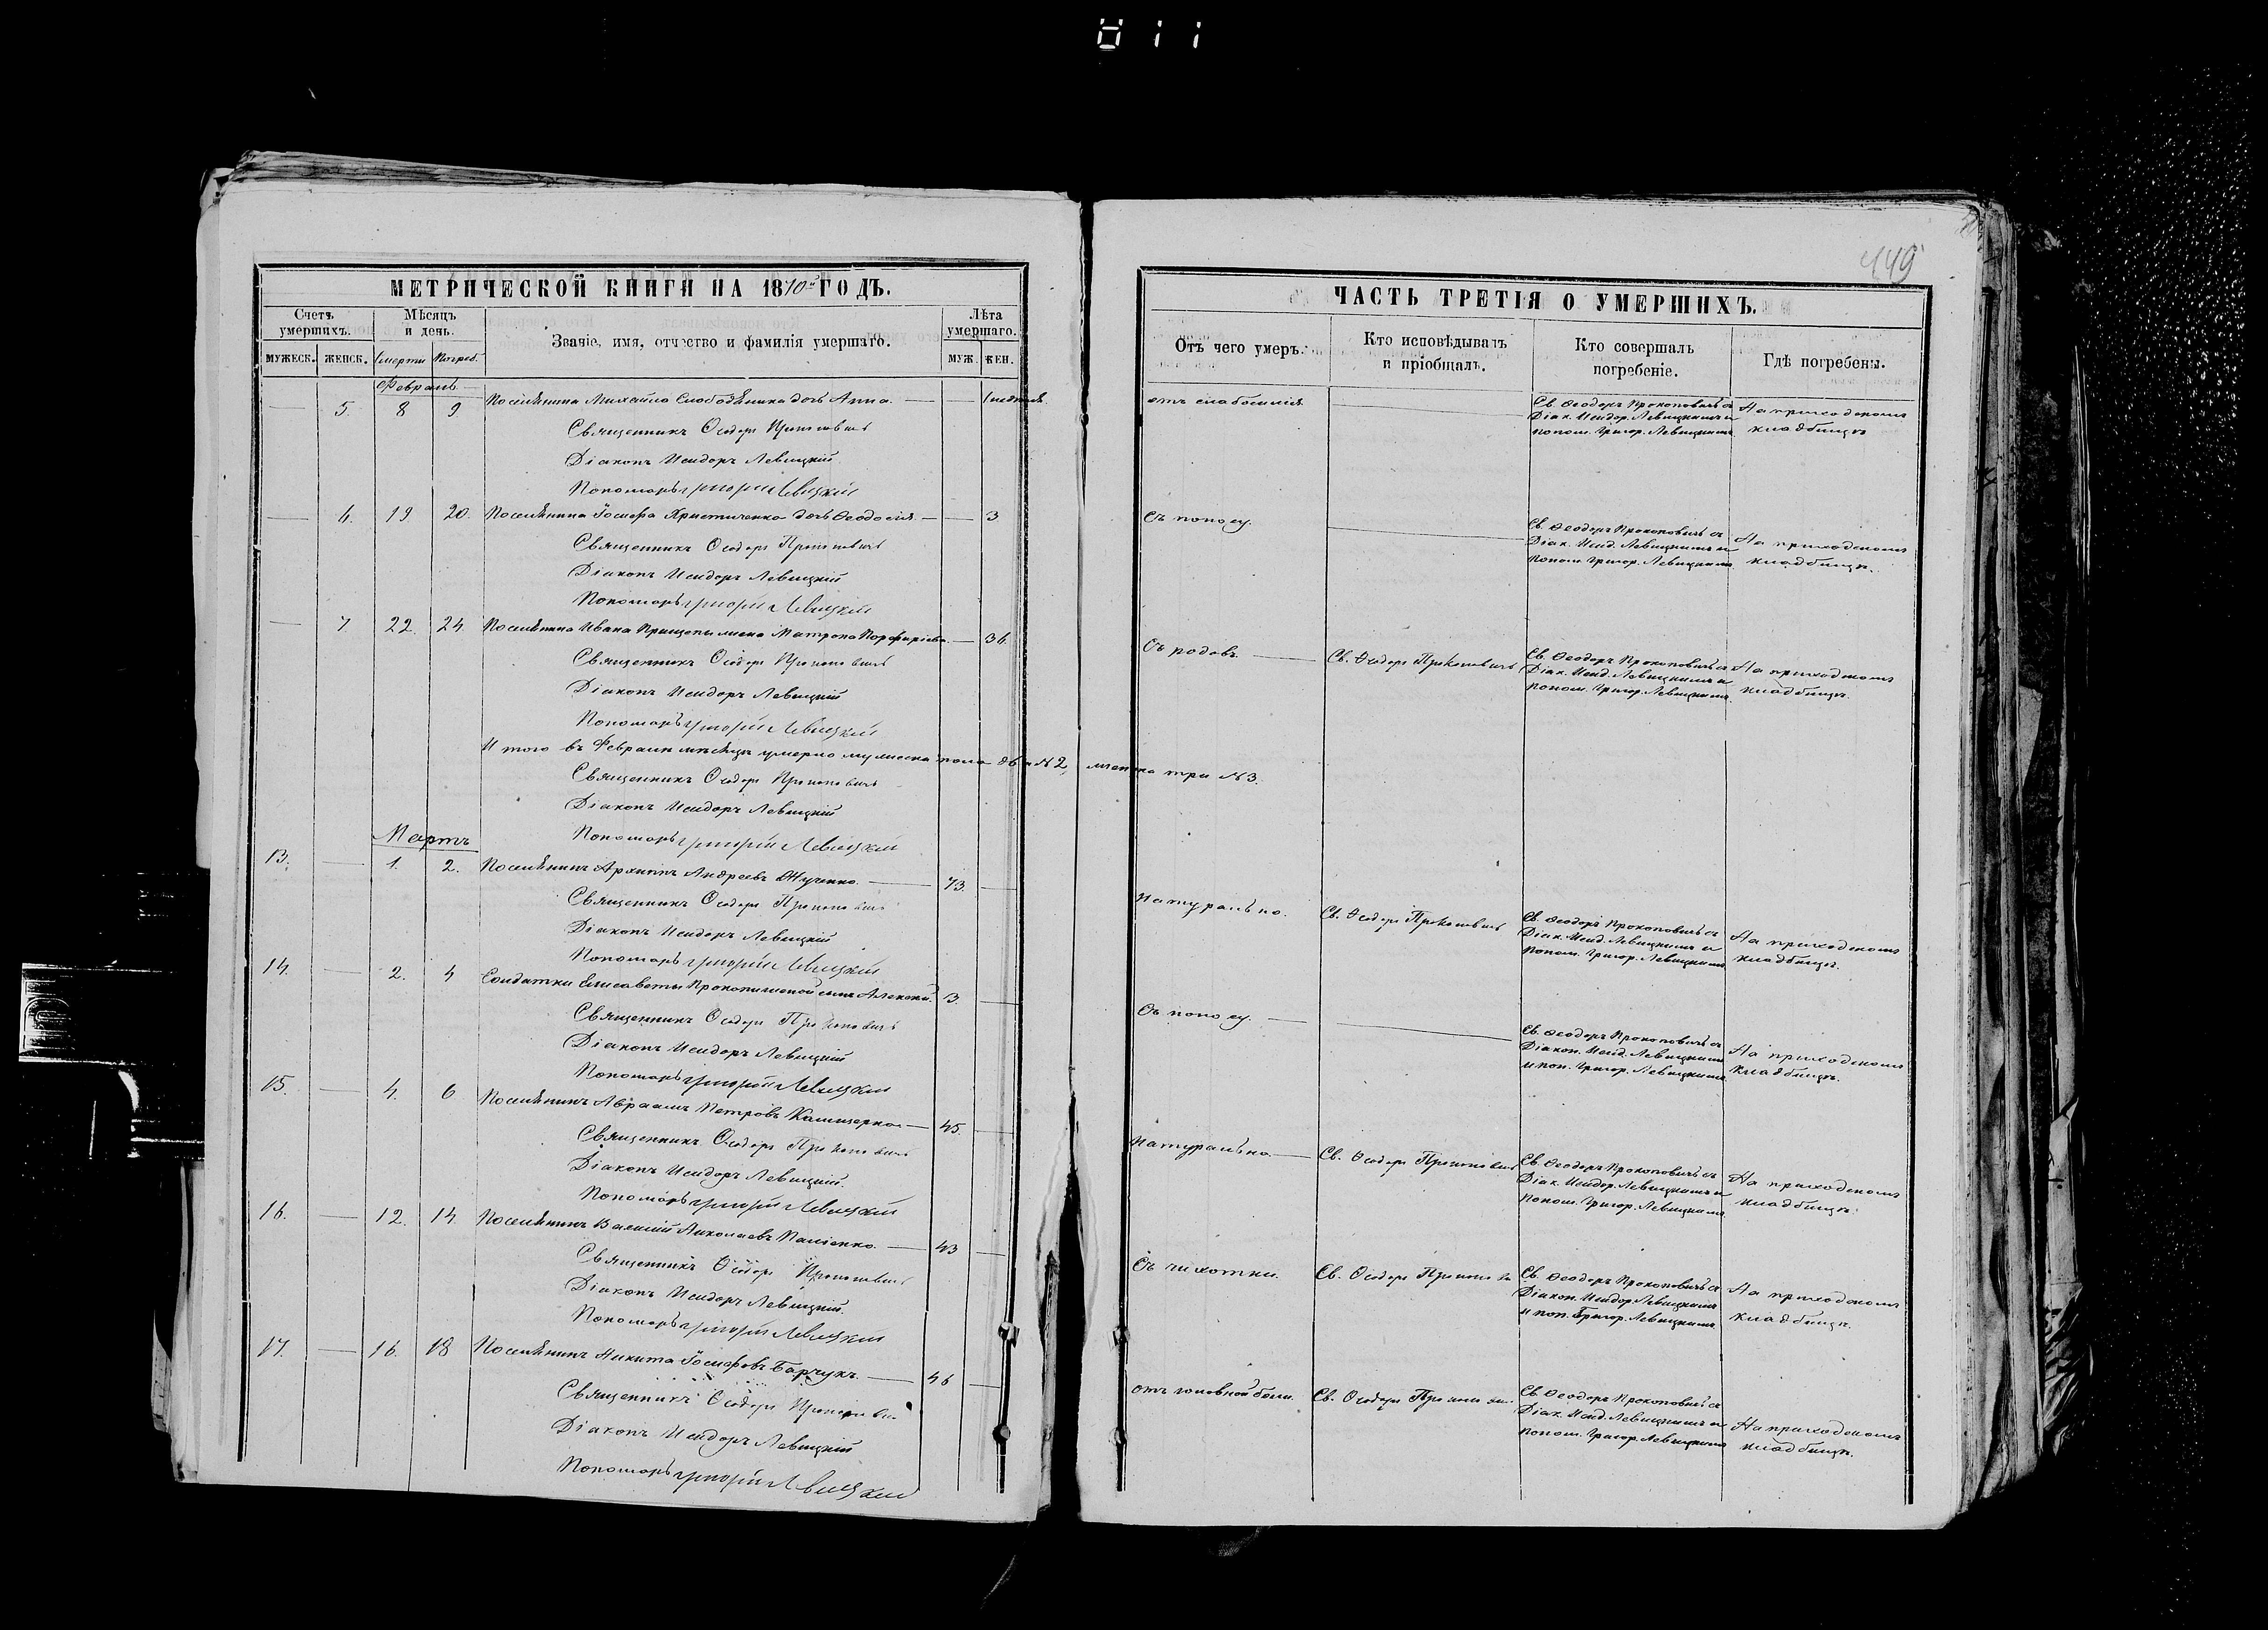 011
449
МЕТРИЧЕСКОЙ КНИГИ НА 1870й ГОДЪ.
Счетъ умершихъ.
Мѣсяцъ и день.
Званіе, имя, отчество и фамилія умершаго.
Лѣта умершаго.
МУЖЕСК. ЖЕНСК. Смерти Погреб. МУЖ. ЖЕН.
Февраль
5. 8 9 Поселянина Михайла Слободяника дочь Анна.
Священникъ Ѳеодоръ Прокоповичъ
Діаконъ Исидоръ Левицкій
Пономарь Григорій Левицкій
6. 19 20. Поселянина Іосифа Христиченка дочь Ѳеодосія. 3
Священникъ Ѳеодоръ Прокоповичъ
Діаконъ Исидоръ Левицкій
Пономарь Григорій Левицкій
7. 22. 24. Поселянина Ивана Прищепы жена Матрона Порфиріева. 36.
Священникъ Ѳеодоръ Прокоповичъ
Діаконъ Исидоръ Левицкій
Пономарь Григорій Левицкій
Итого въ Февралѣ мѣсяцѣ умерло мужеска пола два №2, женска три №3.
Священникъ Ѳеодоръ Прокоповичъ
Діаконъ Исидоръ Левицкій
Пономарь Григорій Левицкій
Мартъ
13. 1. 2. Поселянинъ Архипъ Андреевъ 73.
Священникъ Ѳеодоръ Прокоповичъ
Діаконъ Исидоръ Левицкій
Пономарь Григорій Левицкій
14. 2. 4 Солдатки Елисаветы сынъ Алексѣй. 3.
Священникъ Ѳеодоръ Прокоповичъ
Діаконъ Исидоръ Левицкій
Пономарь Григорій Левицкій
15. 4. 6 Поселянинъ Авраамъ Петровъ 45.
Священникъ Ѳеодоръ Прокоповичъ
Діаконъ Исидоръ Левицкій.
Пономарь Григорій Левицкій
16. 12. 14. Поселянинъ Василій Николаевъ 43
Священникъ Ѳеодоръ Прокоповичъ
Діаконъ Исидоръ Левицкій.
Пономарь Григорій Левицкій
17. 16. 18 Поселянинъ Никита Іосифовъ Барчукъ. 46
Священникъ Ѳеодоръ Прокоповичъ
Діаконъ Исидоръ Левицкій
Пономарь Григорій Левицкій
ЧАСТЬ ТРЕТІЯ О УМЕРШИХЪ.
Отъ чего умеръ.
Кто исповѣдывалъ и пріобщалъ.
Кто совершалъ погребеніе.
Гдѣ погребены.
отъ слабосилія
Св. Ѳеодоръ Прокоповичъ съ
Діак. Исидор. Левицкимъ и
поном. Григор. Левицкимъ
На приходскомъ
кладбищѣ
Съ поносу.
Св. Ѳеодоръ Прокоповичъ съ
Діак. Исид. Левицкимъ и
поном. Григор. Левицкимъ
На приходскомъ
кладбищѣ.
Съ родовъ.
Св. Ѳеодоръ Прокоповичъ
Св. Ѳеодоръ Прокоповичъ съ
Діак. Исид. Левицкимъ и
поном. Григор. Левицкимъ.
На приходскомъ
кладбищѣ.
Натурально.
Св. Ѳеодоръ Прокоповичъ
Св. Ѳеодоръ Прокоповичъ съ
Діак. Исид. Левицкимъ и
поном. Григор. Левицкимъ
На приходскомъ
кладбищѣ.
Съ поносу.
Св. Ѳеодоръ Прокоповичъ съ
Діакон. Исид. Левицкимъ
и пон. Григор. Левицкимъ
На приходскомъ
кладбищѣ.
Натурально
Св. Ѳеодоръ Прокоповичъ
Св. Ѳеодоръ Прокоповичъ съ
Діак. Исидор. Левицкимъ и
поном. Григор. Левицкимъ
На приходскомъ
кладбищѣ.
Съ чихотки.
Св. Ѳеодоръ Прокопови
Св. Ѳеодоръ Прокоповичъ съ
Діакон. Исидор. Левицкимъ
и пон. Григор. Левицкимъ
На приходскомъ
кладбищѣ.
отъ головной боли.
Св. Ѳеодоръ Прокопови
Св. Ѳеодоръ Прокоповичъ съ
Діак. Исид. Левицкимъ и
поном. Григор. Левицкимъ
На приходскомъ
кладбищѣ.